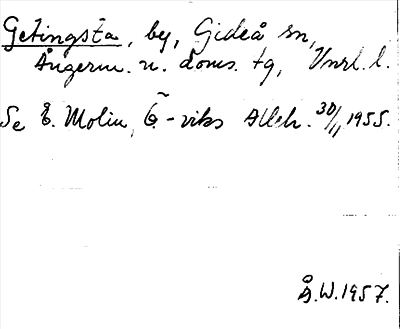 Getingsta, by, Gideå sn,
Ångerm. n. doms. tg, Vnrl. l.
Se E. Molin, Ö-viks Alleh. 30/11 1955.
Å.W. 1957.